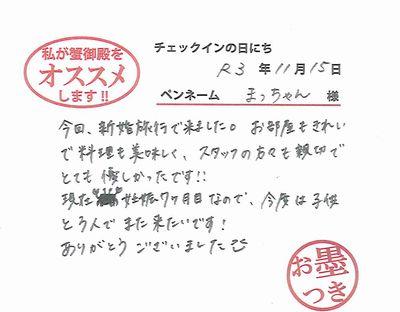 私が蟹御殿を
オススメ
します!!
チェックインの日にち
R3 年 11月 15日
ペンネーム まっちゃん 様
今回、新婚旅行で来ました。お部屋もきれい
で料理も美味しく、スタッフの方々も親切で
とても優しかったです!!
現在 妊娠7ヶ月目なので、今度は子供
と3人でまた来たいです!
ありがとうございました
お墨
つき